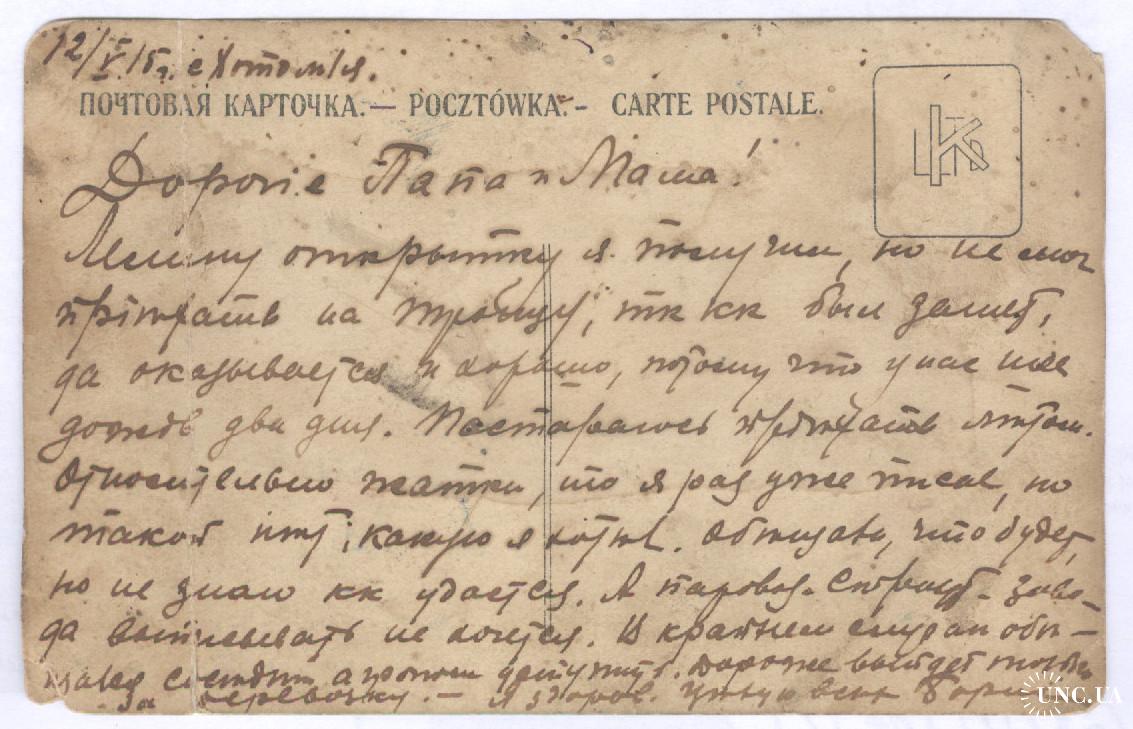 12/V 15г. с Хотомля.
ПОЧТОВАЯ КАРТОЧКА. — POCZTÓWKA. - CARTE POSTALE.
Дорогіе Папа и Мама!
открытку я получил, но не смог
пріѣхать на Троицу, тк кк был занят,
да оказывается и хорошо, потому что у нас шел
дождь два дня. Постараюсь пріѣхать
Относительно жатки, то я раз уже писал, но
такой нѣт, какую я хотѣл. Обѣщали, что будет,
но не знаю кк удастся. А паровая
да выписывать не хочется. В крайнем случаи
Дороже выйдет только
за перевозку. — Я здоров. Цѣлую всѣх Борис
UNC.UA